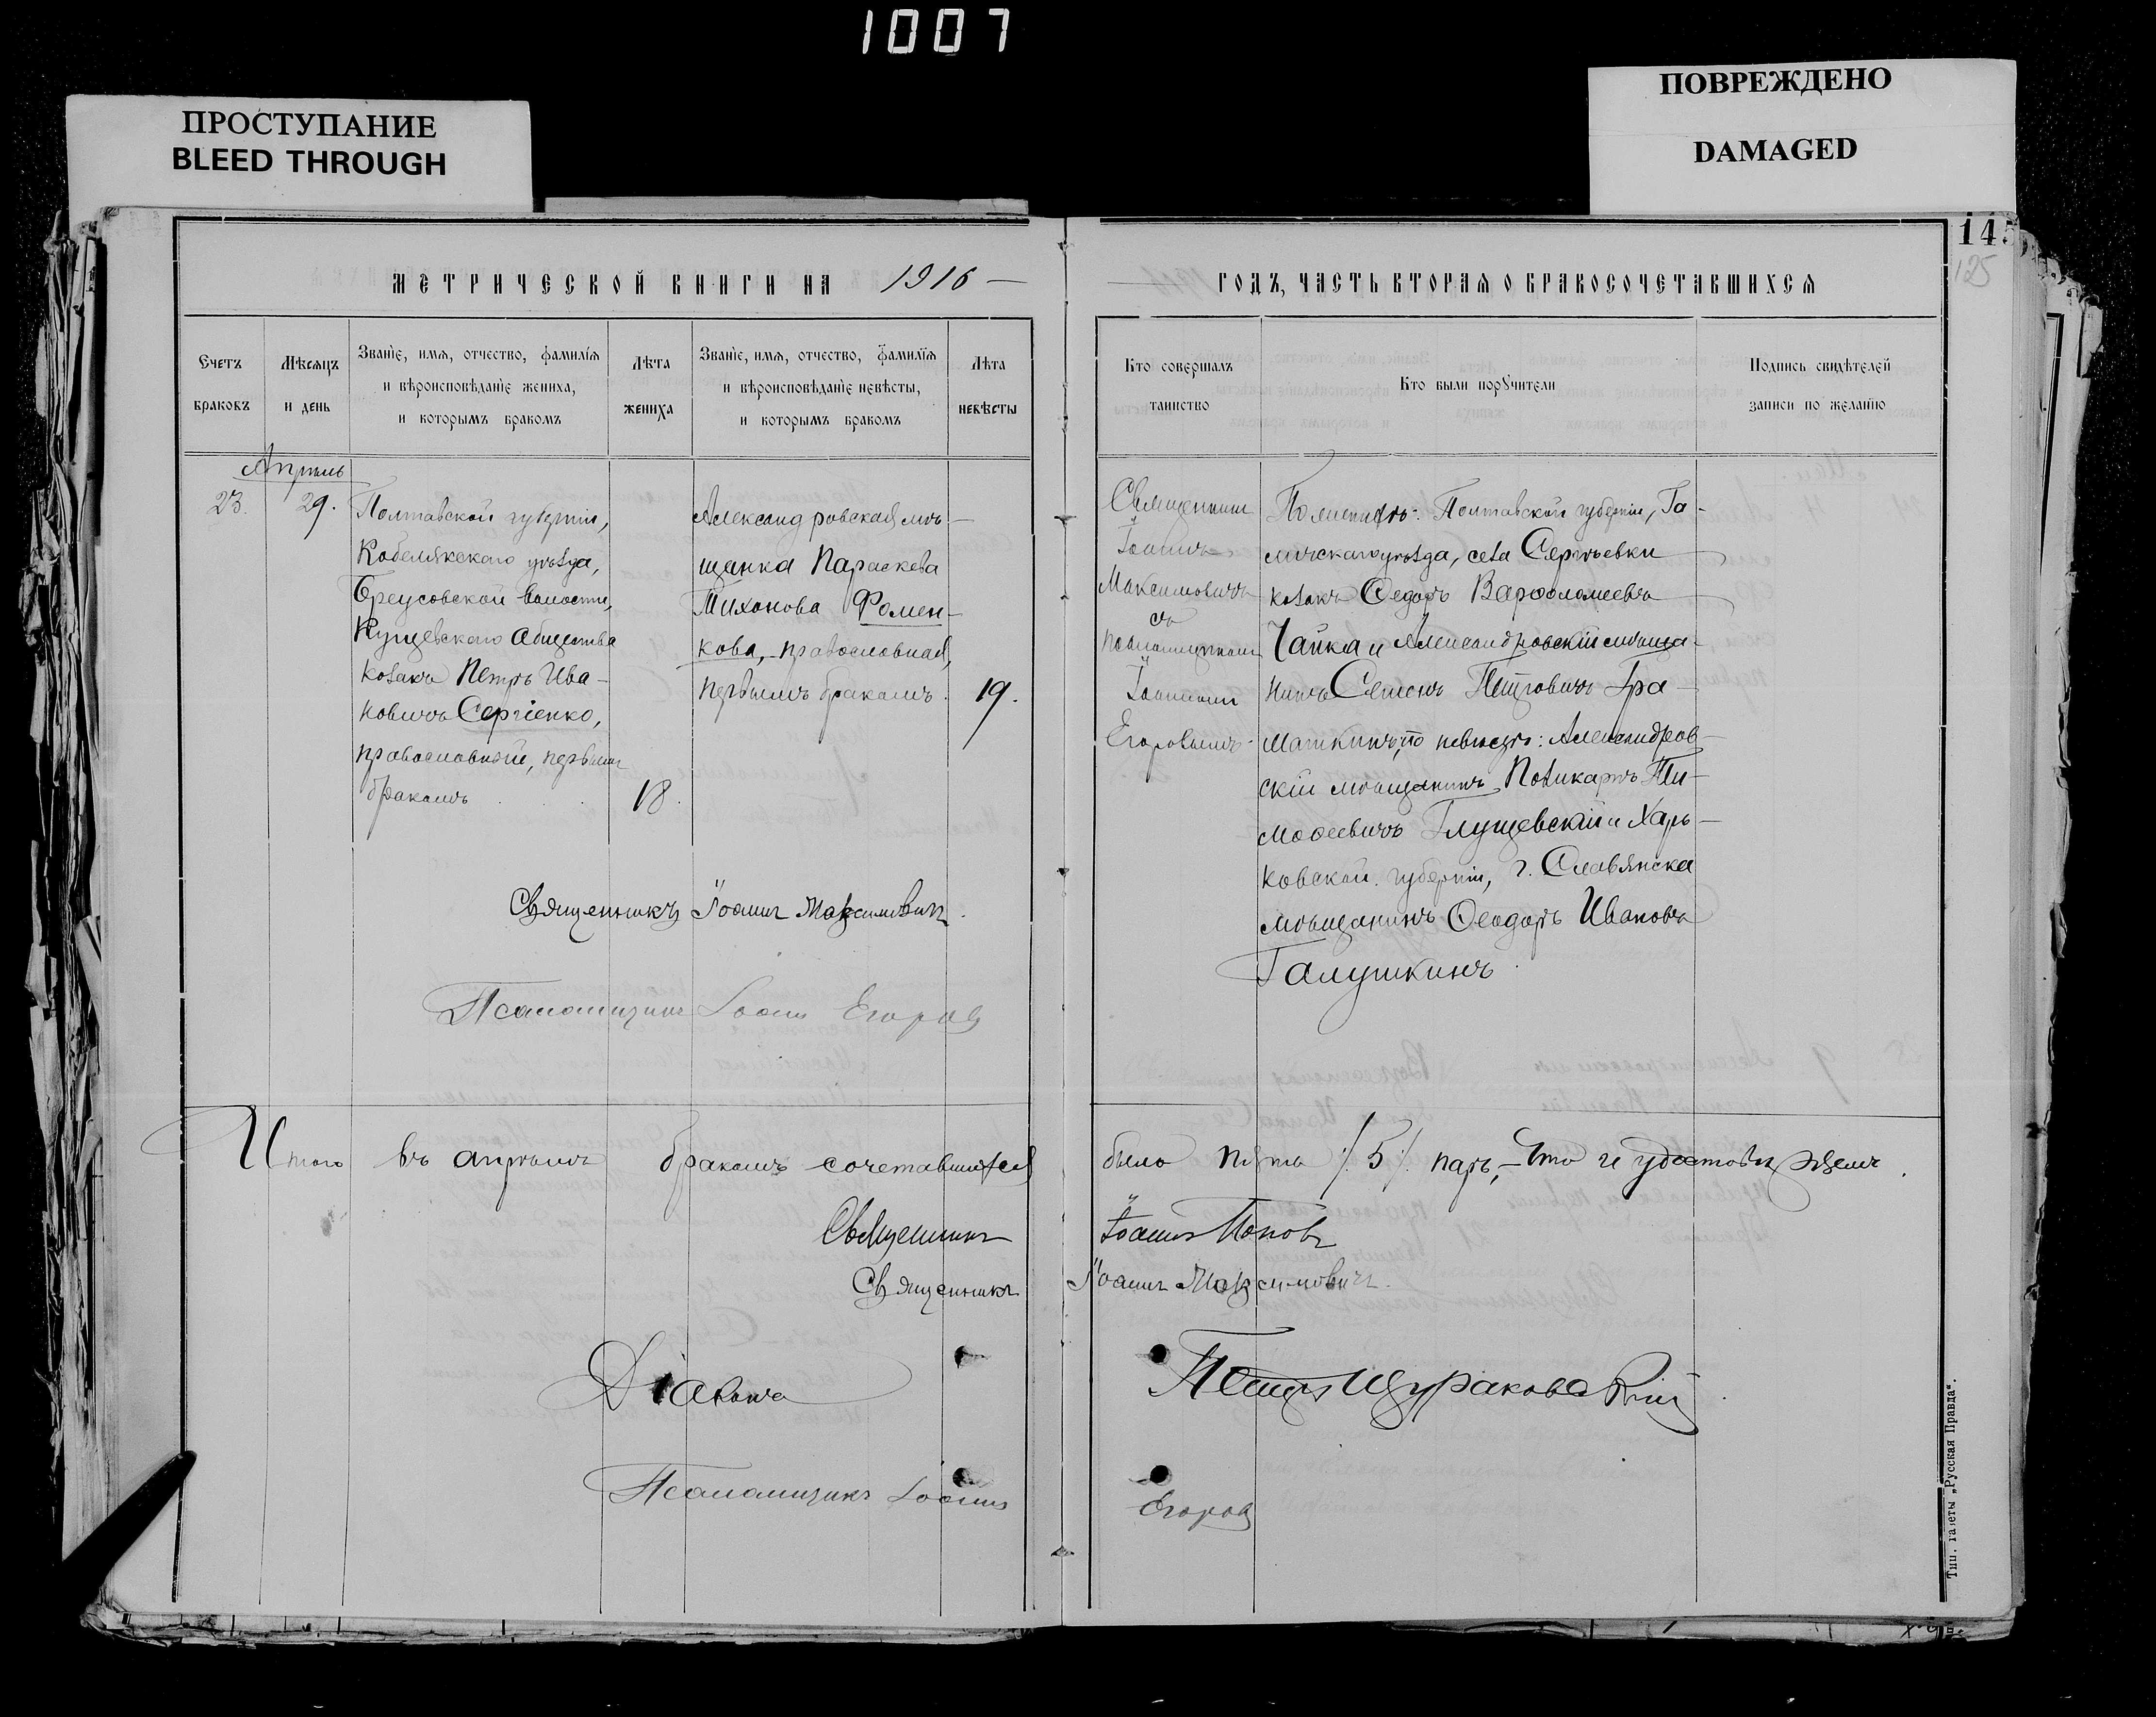 1007
ПРОСТУПАНИЕ
BLEED THROUGH
ПОВРЕЖДЕНО
DAMAGED
145
125
МЕТРИЧЕСКОЙ КНИГИ НА 1916
ГОДЪ, ЧАСТЬ ВТОРАЯ О БРАКОСОЧЕТАВШИХСЯ
Счетъ
браковъ
Мѣсяцъ
и день
Званіе, имя, отчество, фамилія
и вѣроисповѣданіе жениха,
и которымъ бракомъ
Лѣта
жениха
Званіе, имя, отчество, фамилія
и вѣроисповѣданіе невѣсты,
и которымъ бракомъ
Лѣта
невѣсты
Кто совершалъ
таинство
Кто были поручители
Подпись свидѣтелей
записи по желанію
Апрѣль
23.
29.
Полтавской губерніи,
Кобелякскаго уѣзда,
Бреусовской волости,
Кущевскаго общества
козакъ Петръ Ива-
новичъ Сергіенко,
православный, первымъ
бракомъ
18.
Александровская мѣ-
щанка Параскева
Тихонова Фомен-
кова, православная,
первымъ бракомъ.
19.
Священникъ
Іоаннъ
Максимовичъ
съ
псаломщикомъ
Іоанномъ
Егоровымъ.
По женихѣ: Полтавской губерніи, Га-
дячскаго уѣзда, села Сергѣевки
козакъ Ѳедоръ Варѳоломеевъ
Чайка и Александровскій мѣща-
нинъ Семенъ Петровичъ Гра-
машкинъ; по невѣстѣ: Александров-
скій мѣщанинъ Поликарпъ Ти-
моѳеевичъ Глущевскій и Харь-
ковской губерніи, г. Славянска
мѣщанинъ Ѳеодоръ Ивановъ
Галушкинъ.
Священникъ Іоаннъ Максимовичъ.
Псаломщикъ Іоаннъ Егоровъ
Итого въ апрѣлѣ бракомъ сочетавшихся было пять /5/ паръ,- Что и удостовѣряемъ.
Священникъ Іоаннъ Поповъ
Священникъ Іоаннъ Максимовичъ.
Діаконъ Петръ Щураковскій
Псаломщикъ Іоаннъ Егоровъ
Тип. газеты „Русская Правда“.